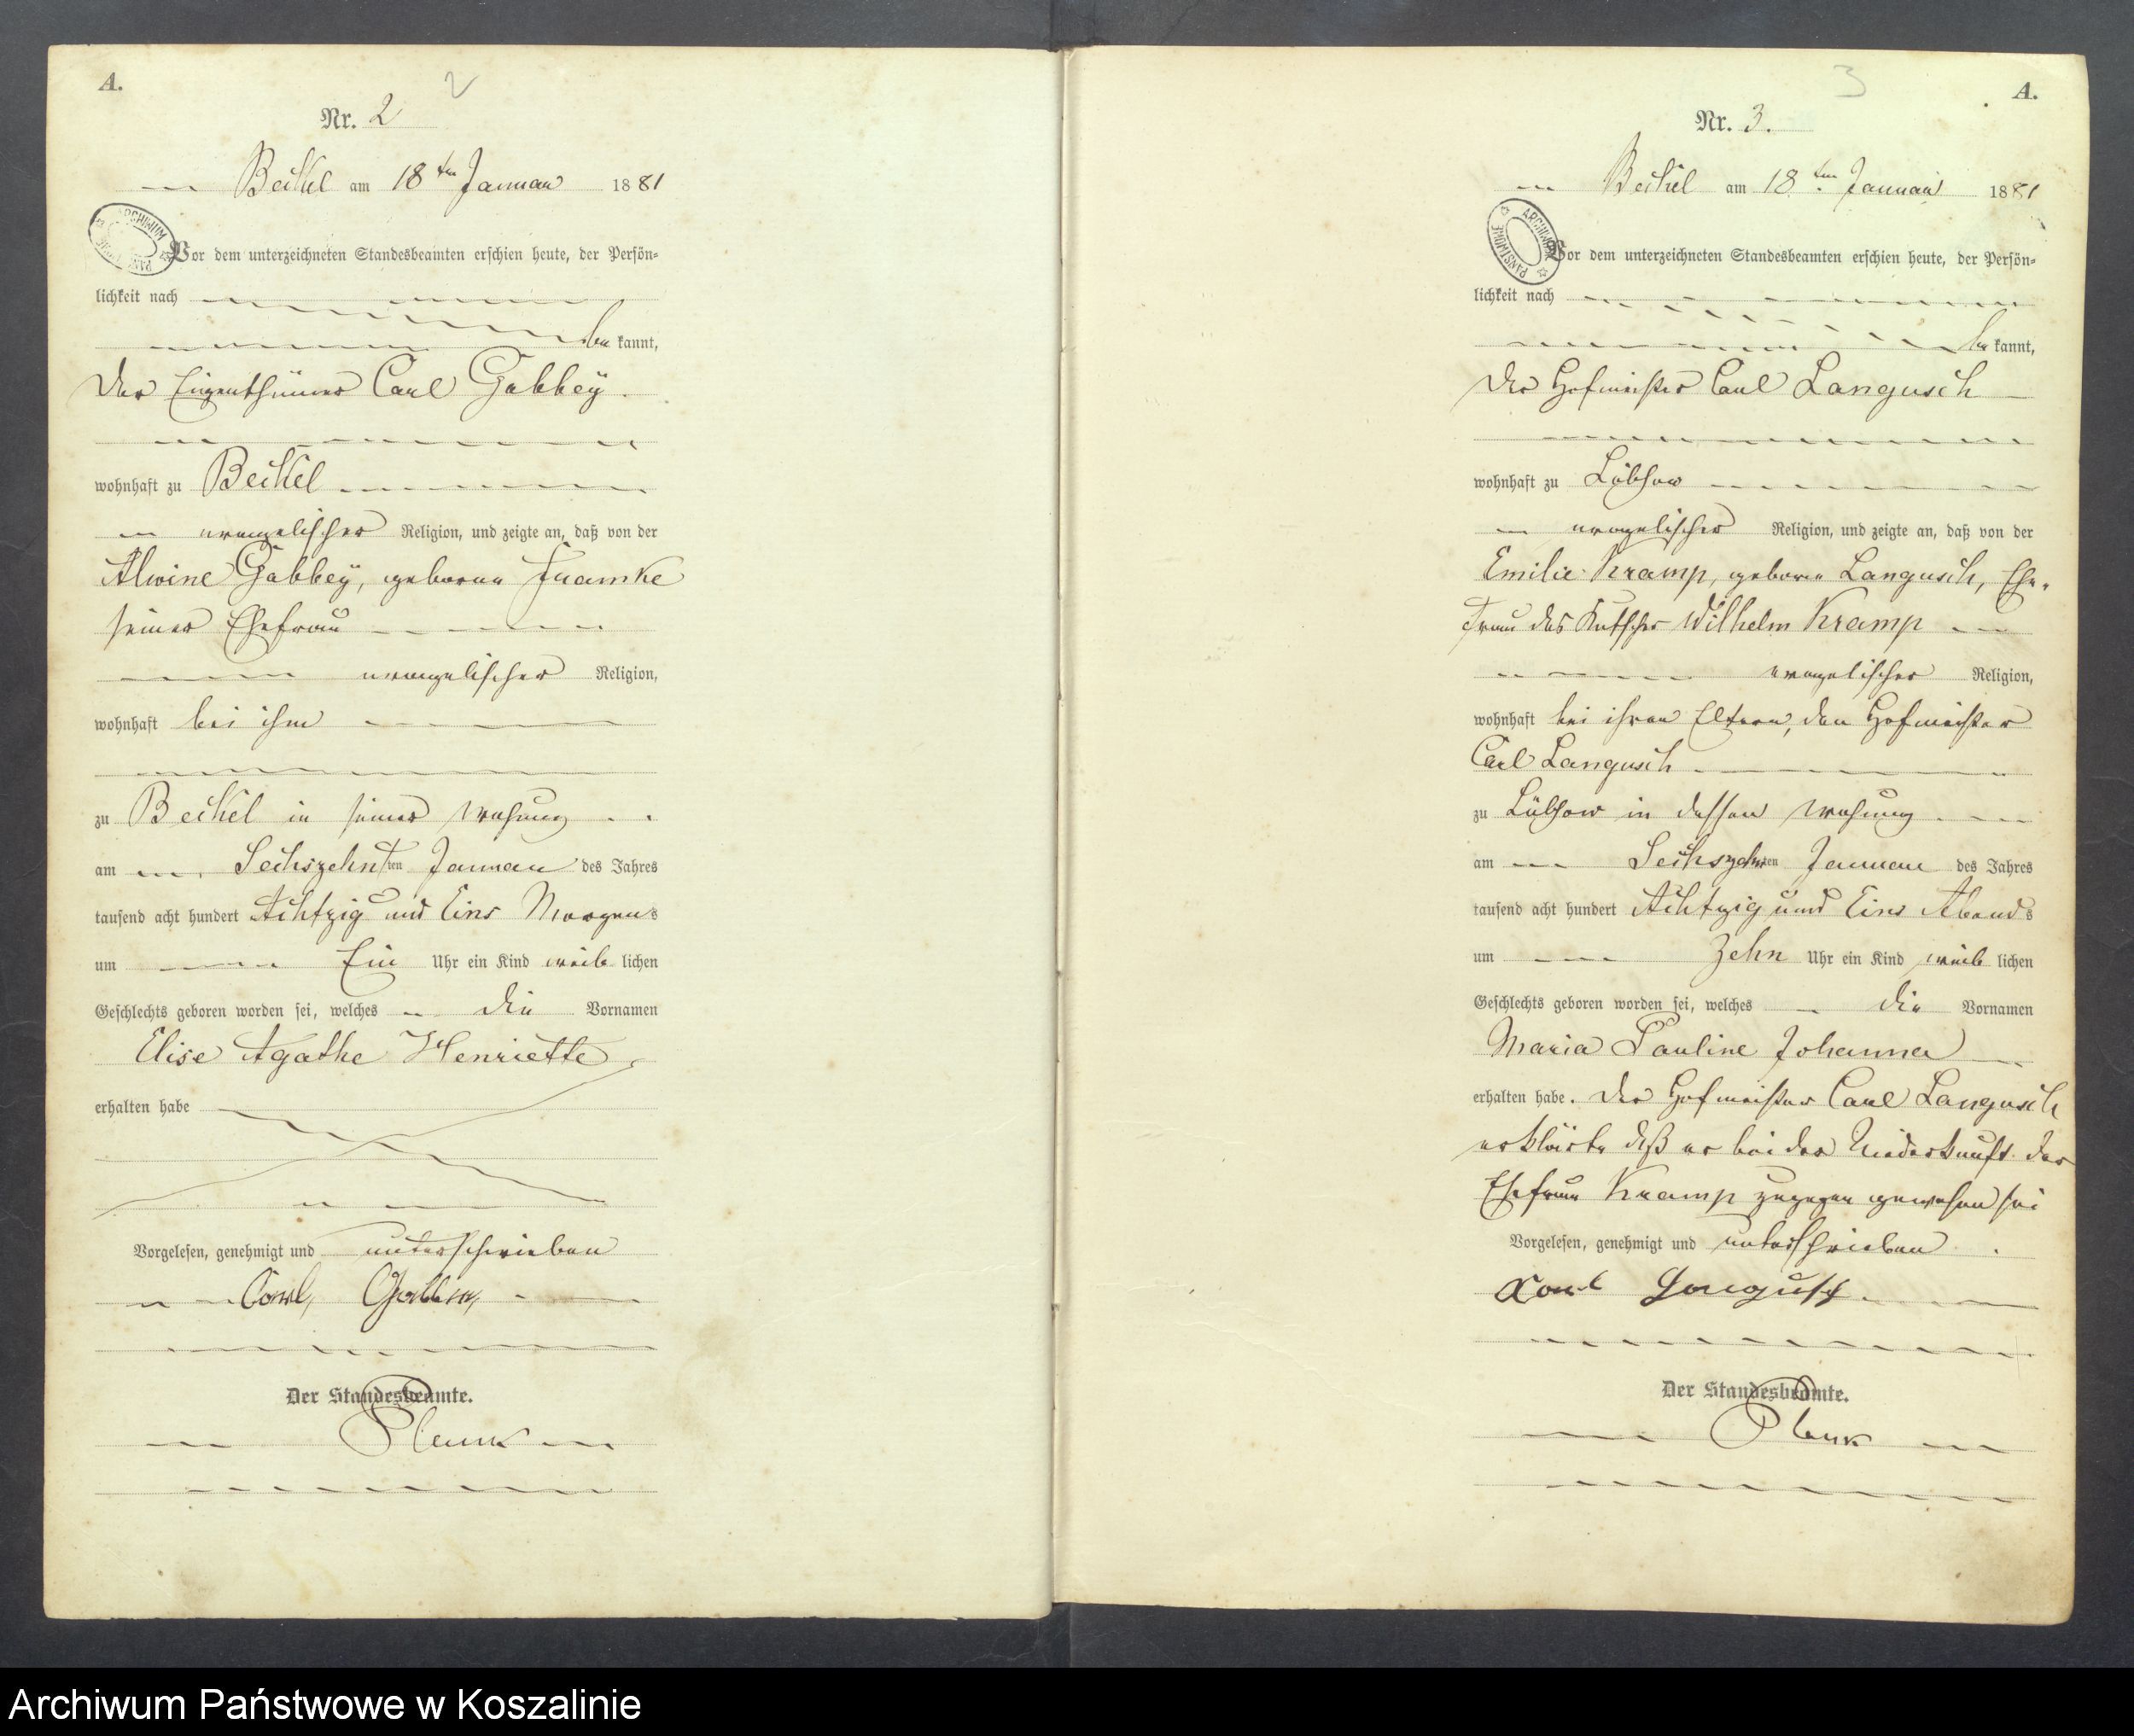 A.
2
Nr. 2
Beckel am 18ten Januar 1881
ARCHIWUM
Vor dem unterzeichneten Standesbeamten erschien heute, der Persön-
lichkeit nach
be kannt,
Der Eigenthümer Carl Gabbey.
wohnhaft zu Beckel
evangelischer Religion, und zeigte an, daß von der
Alwine Gabbey, geborene
seiner Ehefrau
evangelischer Religion,
wohnhaft bei ihm
zu Beckel in seiner Wohnung
am Sechszehnten Januar des Jahres
tausend acht hundert Achtzig und Eins Morgens
um Ein Uhr ein Kind weib lichen
Geschlechts geboren worden sei, welches die Vornamen
Elise Agathe Henriette
erhalten habe
Vorgelesen, genehmigt und unterschrieben
Carl Gabbey
Der Standesbeamte.
Plenk
3
A.
Nr. 3.
Beckel am 18ten Januar 1881
ARCHIWUM PAŃSTWOWE
Vor dem unterzeichneten Standesbeamten erschien heute, der Persön-
lichkeit nach
be kannt,
Der Hofmeister Carl Langusch
wohnhaft zu Lübzow
evangelischer Religion, und zeigte an, daß von der
Emilie Kramp, geborene Langusch, Ehe-
frau des Kutscher Wilhelm Kramp
evangelischer Religion,
wohnhaft bei ihren Eltern, den Hofmeister
Carl Langusch
zu Lübzow in dessen Wohnung
am Sechszehnten Januar des Jahres
tausend acht hundert Achtzig und Eins Abends
um Zehn Uhr ein Kind weib lichen
Geschlechts geboren worden sei, welches die Vornamen
Maria Pauline Johanna
erhalten habe. Der Hofmeister Carl Langusch
erklärte daß er bei der Niederkunft der
Ehefrau Kramp zugegen gewesen sei
Vorgelesen, genehmigt und unterschrieben.
Karl Langusch
Der Standesbeamte.
Plenk
Archiwum Państwowe w Koszalinie